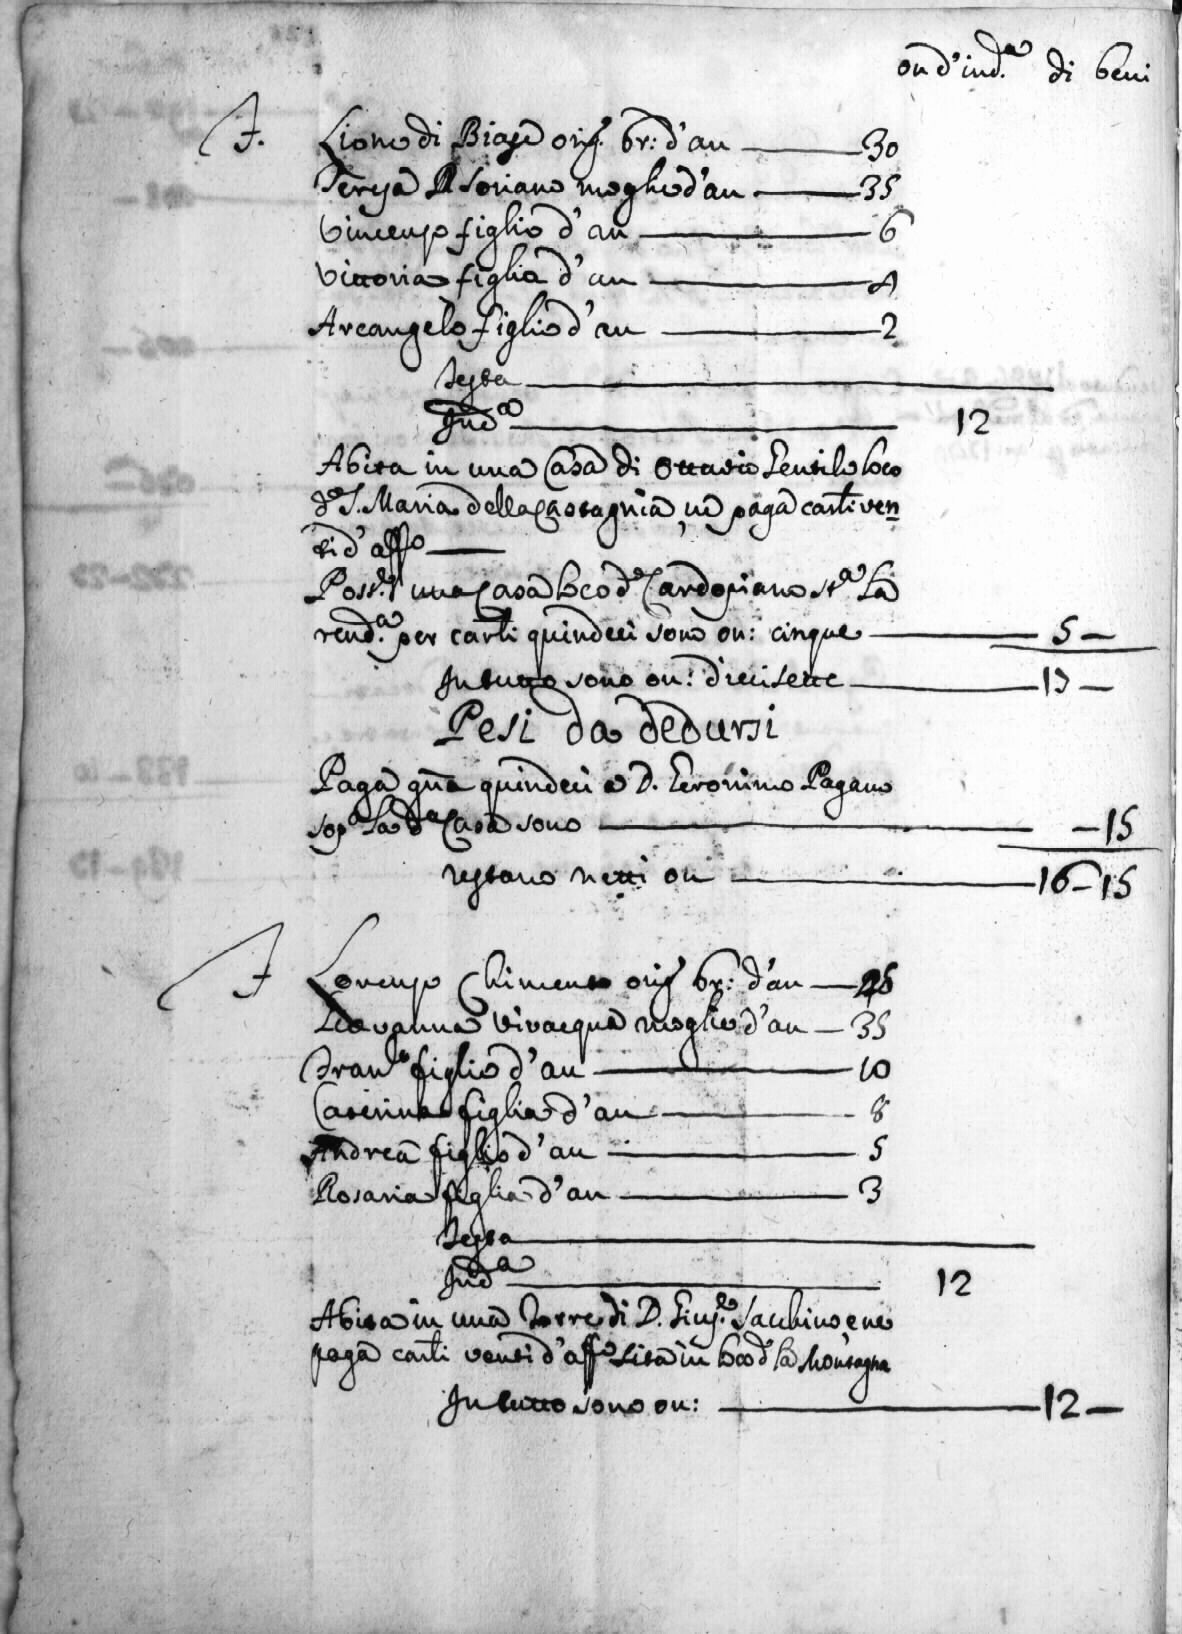 on d'ind.a di beni
F. Lione di Biase orig. br: d'an 30
Teresa Soriano moglie d'an 35
Vincenzo figlio d'an 6
Vittoria figlia d'an 4
Arcangelo figlio d'an 2
Testa
Ind.a 12
Abita in una Casa di Ottavio Gentile loco
d.o S. Maria della Castagnia, ne paga carlini ven
ti d'aff.o
Poss.e una Casa loco d.o Cardopiano st.a La
rend.a per carlini quindeci sono on: cinque 5 —
In tutto sono on: diecisette 17 —
Pesi da dedursi
Paga gna quindeci a D. Geronimo Pagano
sop.a la d.a Casa sono — 15
restano netti on 16 — 15
F Lorenzo Chimento orig. br: d'an 25
Giovanna Vivacqua moglie d'an 35
Fran.o figlio d'an 10
Caterina figlia d'an 8
Andrea figlio d'an 5
Rosaria figlia d'an 3
Testa
Ind.a 12
Abita in una torre di D. Sacchino e ne
paga carlini venti d'aff.o sita in loco d.o la Montagna
In tutto sono on: 12 —